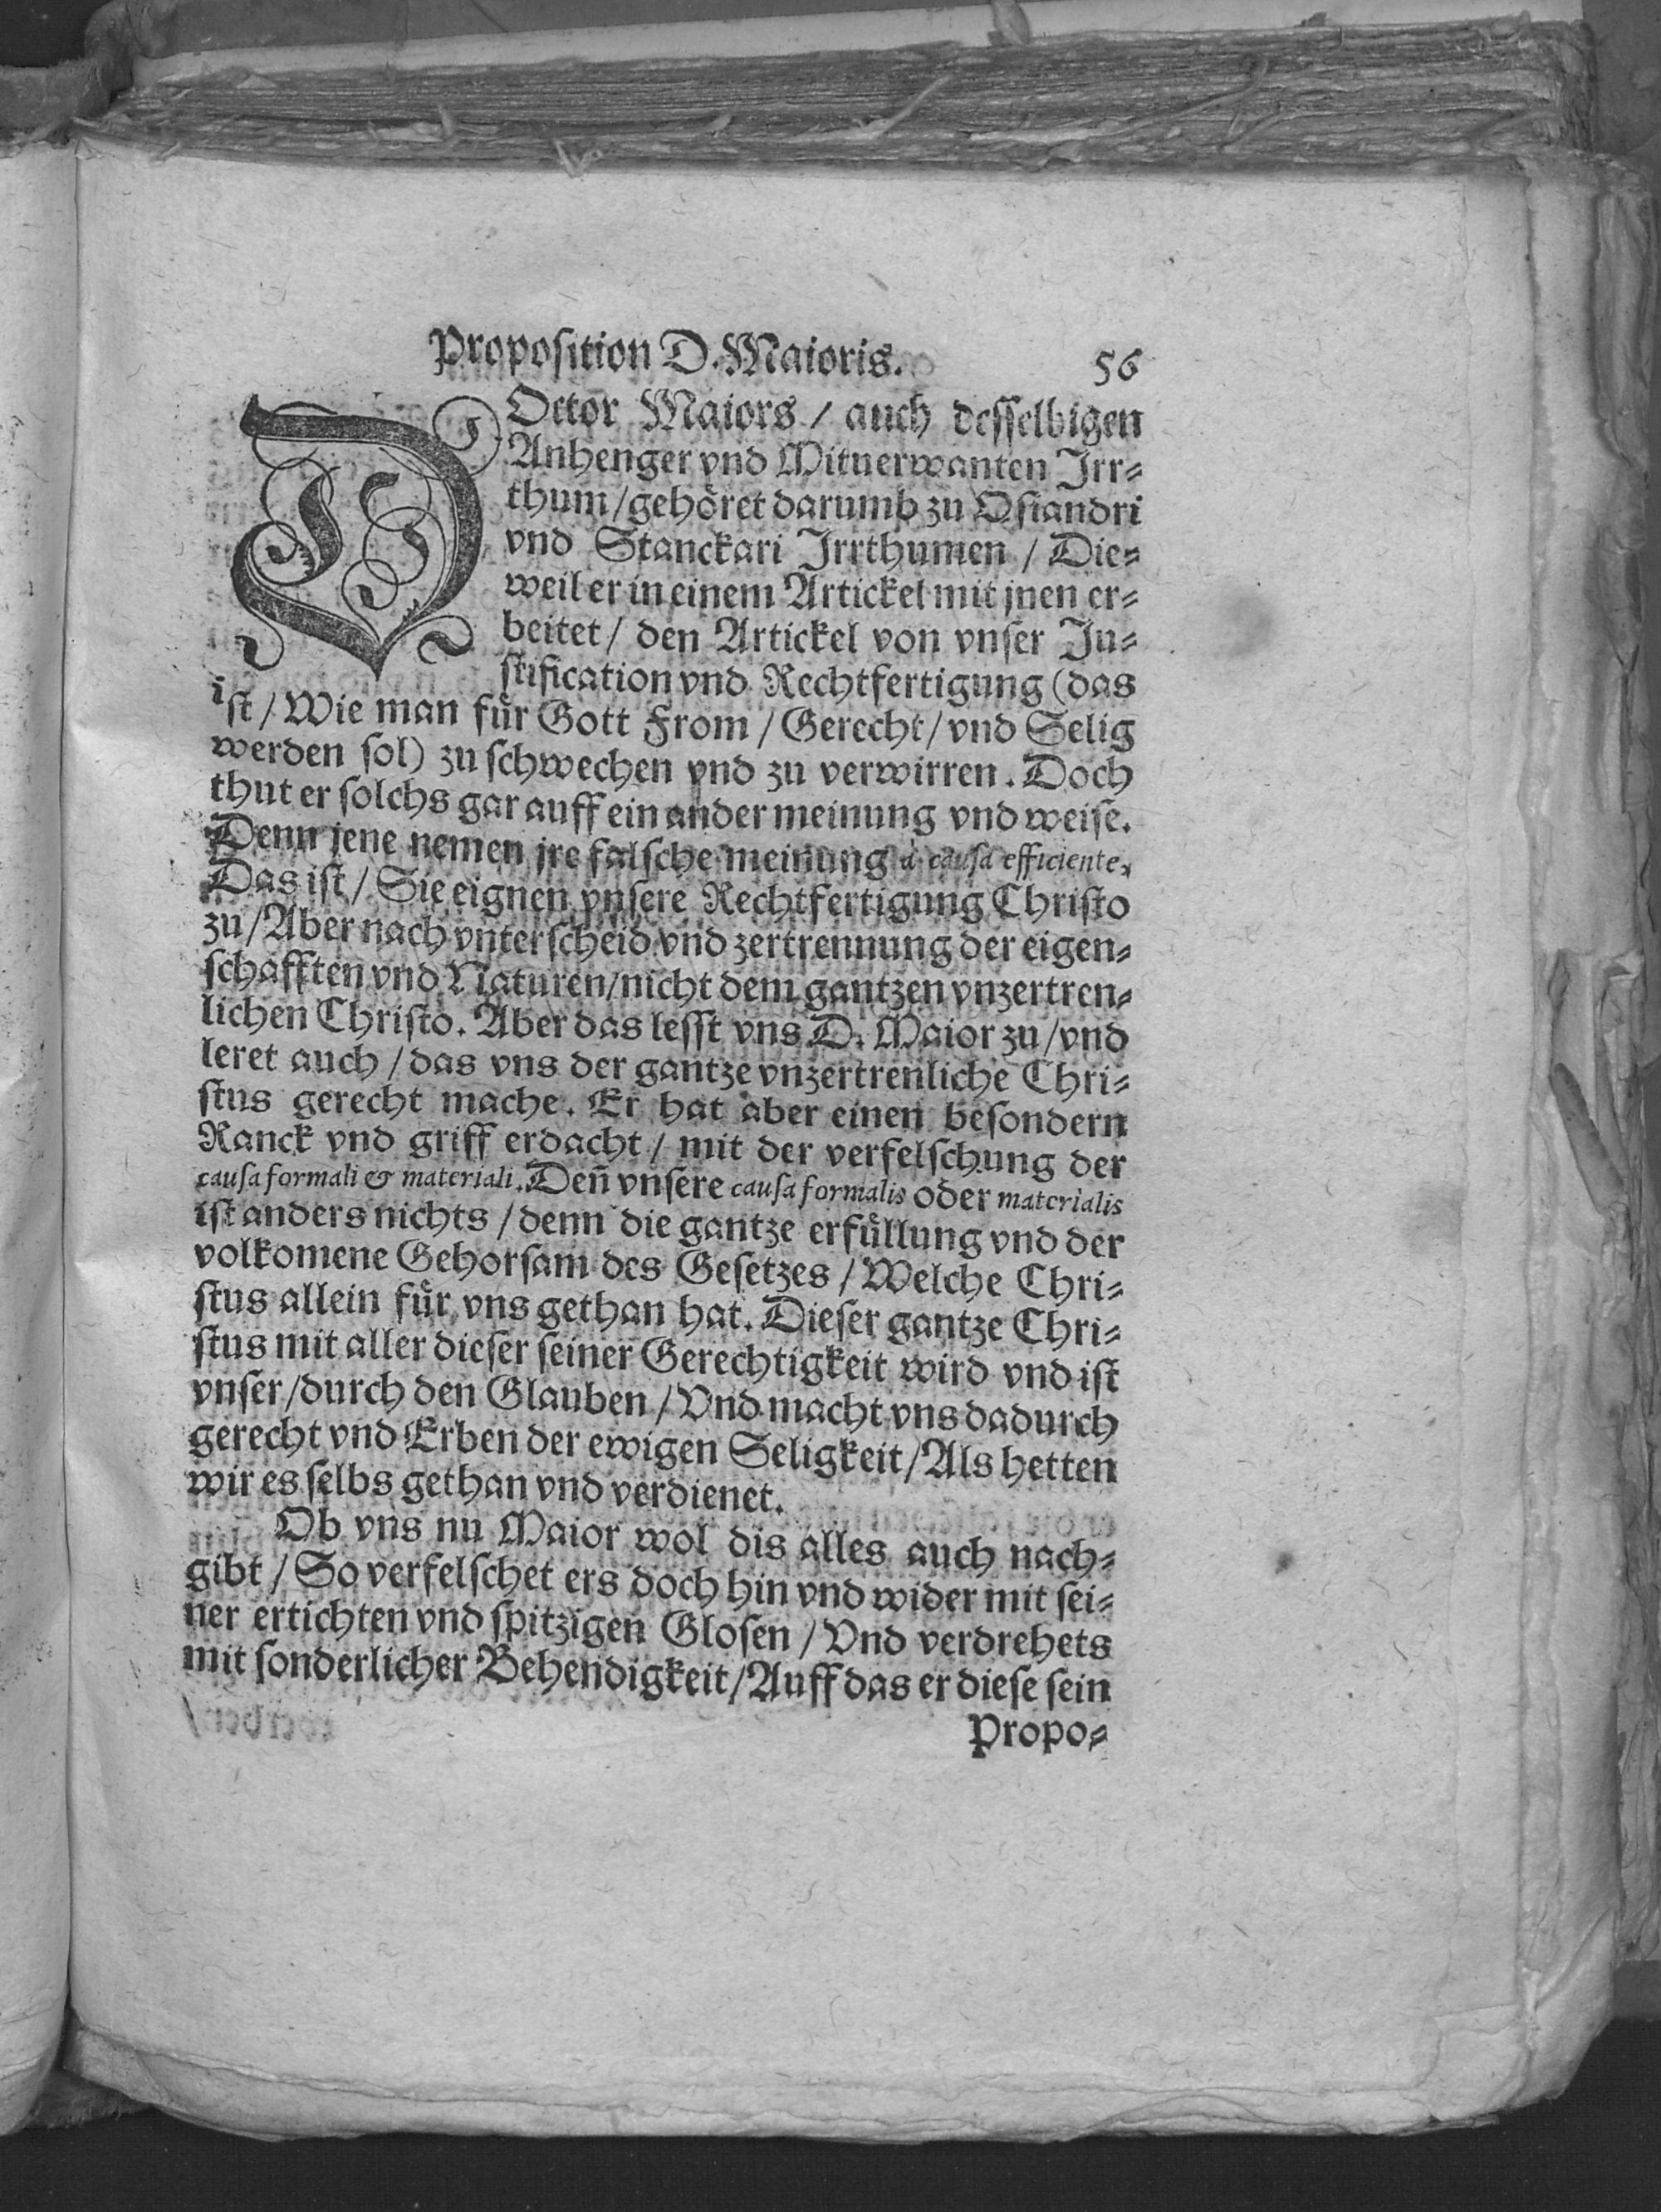 Proposition D. Maioris. 56
DOctor Maiors / auch desselbigen
Anhenger vnd Mituerwanten Irr⸗
thum / gehöret darumb zu Osiandri
vnd Stanckari Irrthumen / Die⸗
weil er in einem Artickel mit jnen er⸗
beitet / den Artickel von vnser Ju⸗
stification vnd Rechtfertigung (das
ist / Wie man für Gott From / Gerecht / vnd Selig
werden sol) zu schwechen vnd zu verwirren. Doch
thut er solchs gar auff ein ander meinung vnd weise.
Denn jene nemen jre falsche meinung à causa efficiente,
Das ist / Sie eignen vnsere Rechtfertigung Christo
zu / Aber nach vnterscheid vnd zertrennung der eigen⸗
schafften vnd Naturen / nicht dem gantzen vnzertren⸗
lichen Christo. Aber das lesst vns D. Maior zu / vnd
leret auch / das vns der gantze vnzertrenliche Chri⸗
stus gerecht mache. Er hat aber einen besondern
Ranck vnd griff erdacht / mit der verfelschung der
causa formali & materiali. Deñ vnsere causa formalis oder materialis
ist anders nichts / denn die gantze erfüllung vnd der
volkomene Gehorsam des Gesetzes / Welche Chri⸗
stus allein für vns gethan hat. Dieser gantze Chri⸗
stus mit aller dieser seiner Gerechtigkeit wird vnd ist
vnser / durch den Glauben / Vnd macht vns dadurch
gerecht vnd Erben der ewigen Seligkeit / Als hetten
wir es selbs gethan vnd verdienet.
Ob vns nu Maior wol dis alles auch nach⸗
gibt / So verfelschet ers doch hin vnd wider mit sei⸗
ner ertichten vnd spitzigen Glosen / Vnd verdrehets
mit sonderlicher Behendigkeit / Auff das er diese sein
Propo⸗